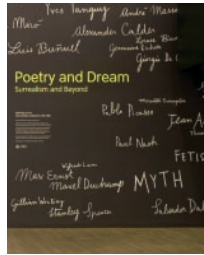 Yves Tanguy
André Mass
Miró
Alexander Calder
Louise Bour
Luis Buñuel
Germaine Dulac
Giorgio de C
Poetry and Dream
Surrealism and Beyond
Pablo Picasso
Jean A
Paul Nash
FETIS
Wifredo Lam
Max Ernst
Marcel Duchamp
MYTH
Gillian Wearing
Stanley Spencer
Salvador Dal